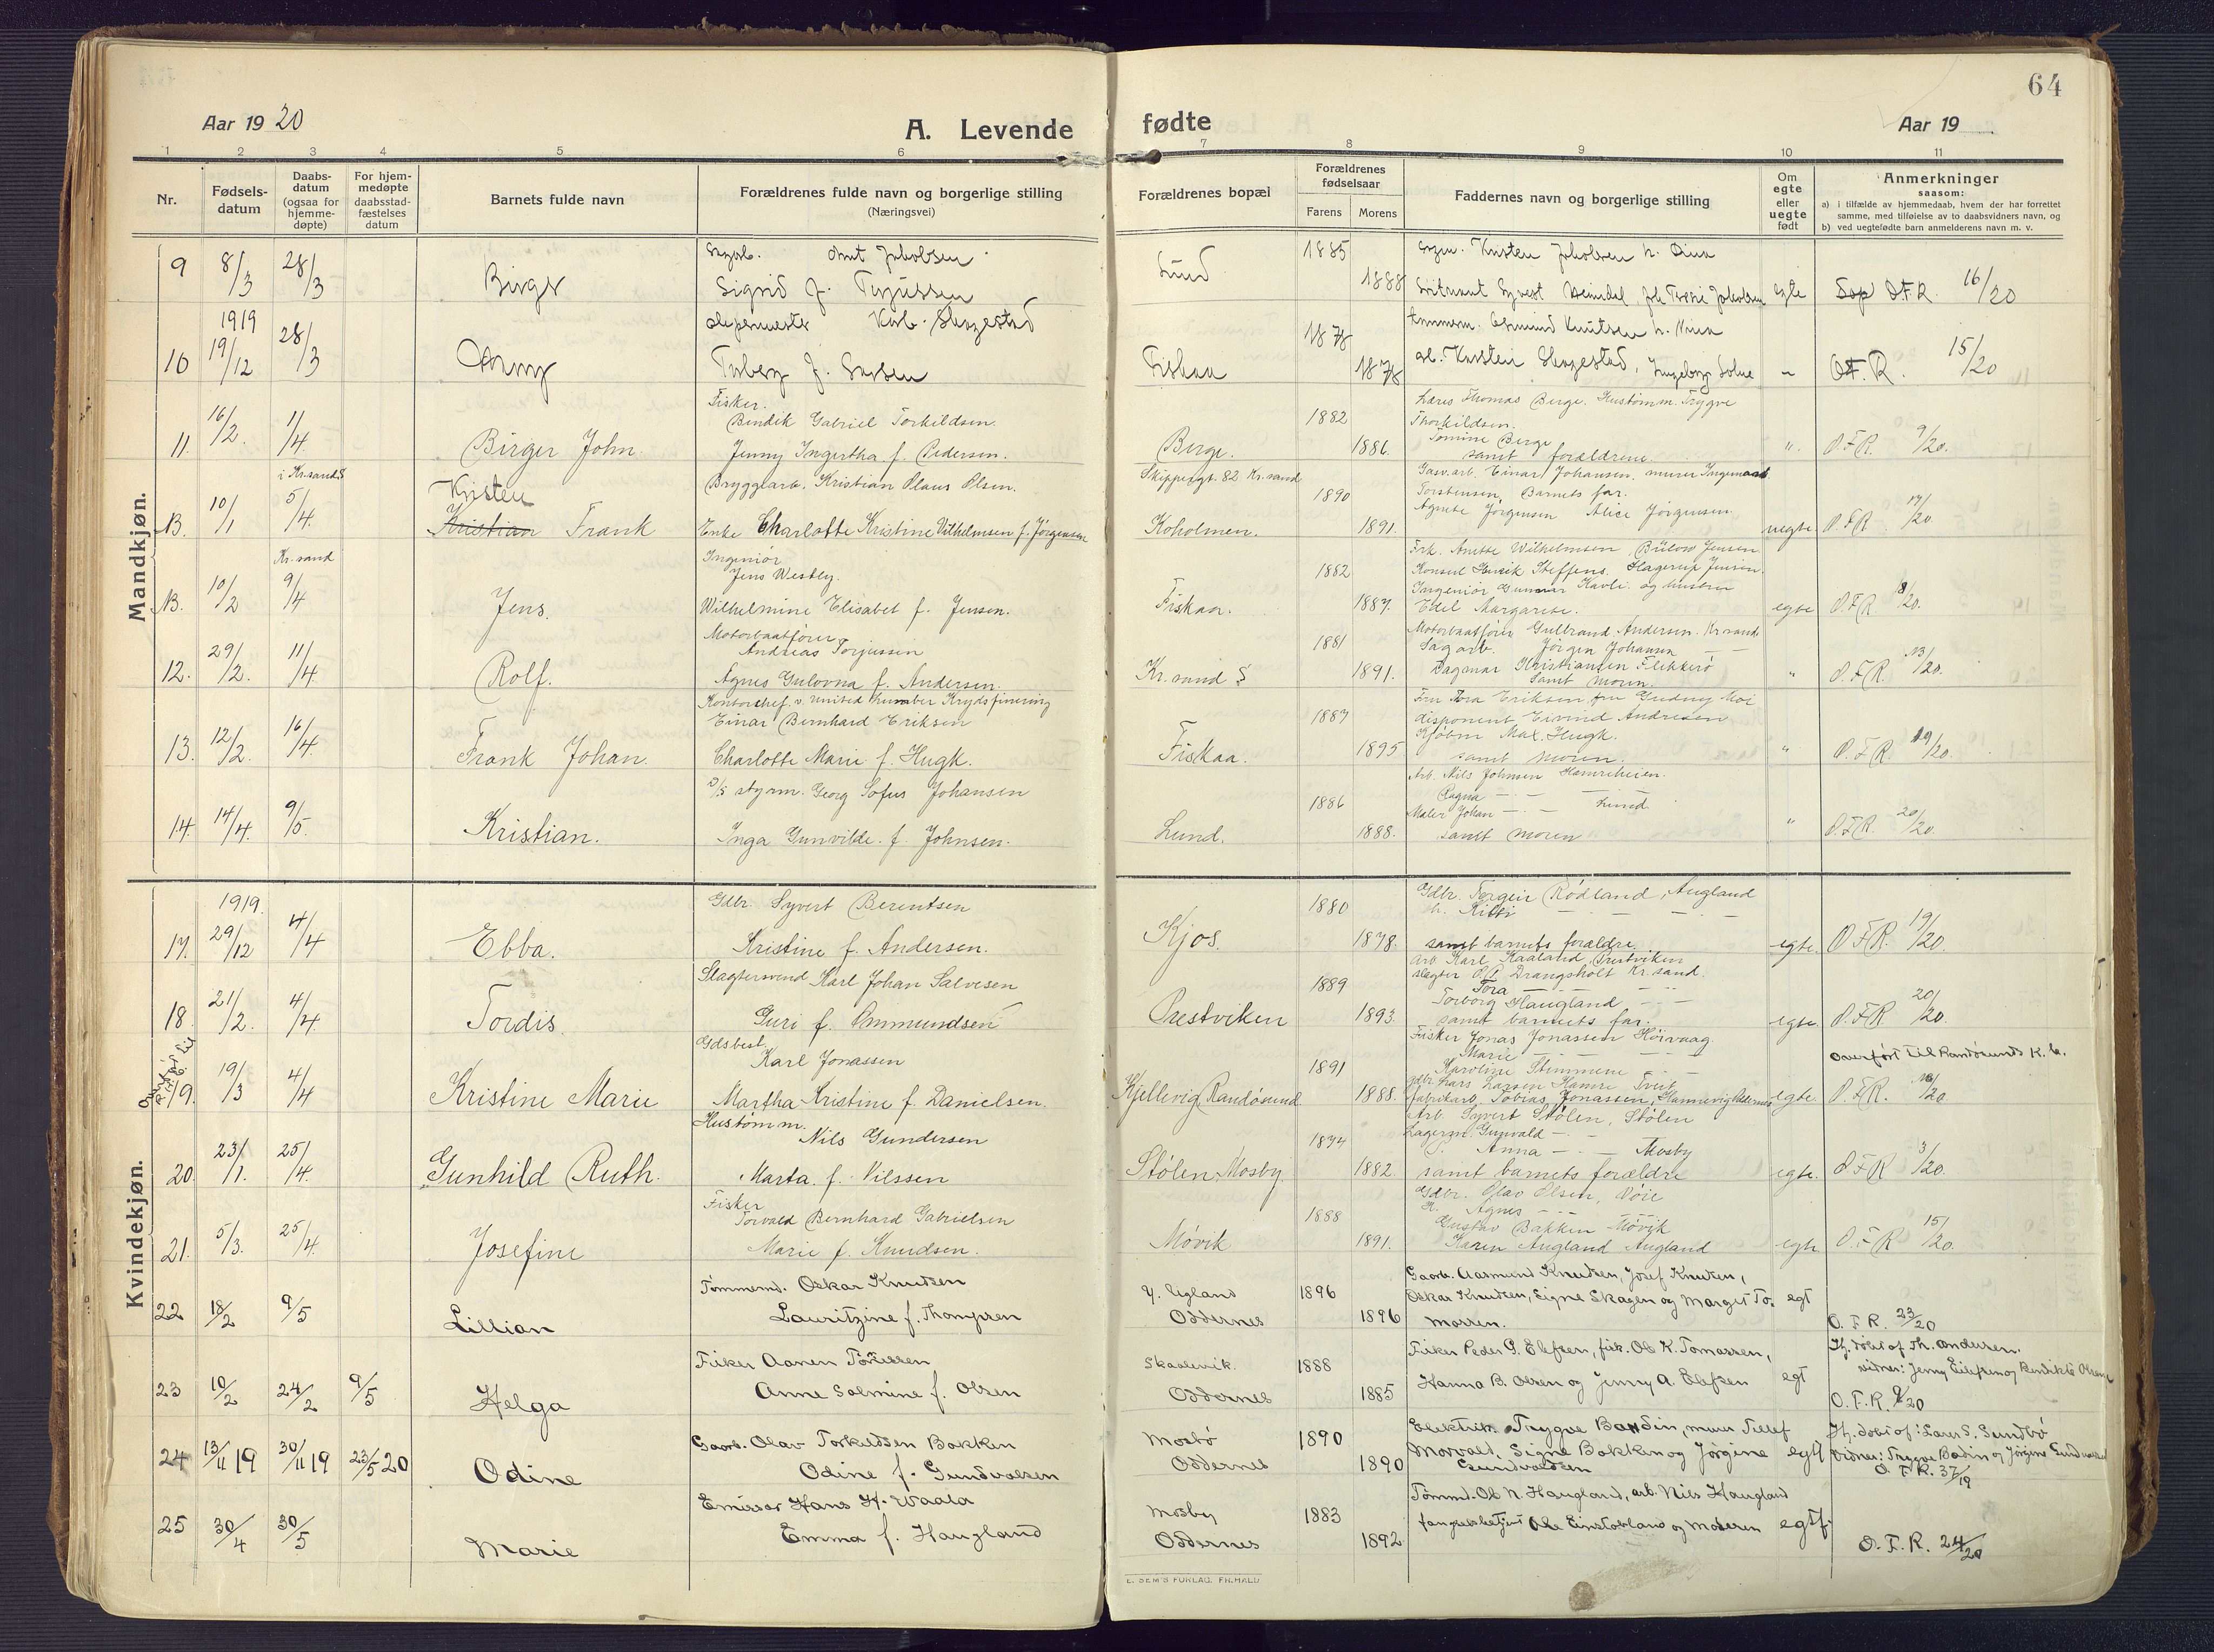 64
Aar 1920
A. Levende
fødte
Aar 19
1 2 3 4 5 6 7 8 9 10 11
Nr.
Fødsels-
datum
Daabs-
datum
(ogsaa for
hjemme-
døpte)
For hjem-
medøpte
daabsstad-
fæstelses
datum
Barnets fulde navn
Forældrenes fulde navn og borgerlige stilling
(Næringsvei)
Forældrenes bopæl
Forældrenes
fødselsaar
Farens
Morens
Faddernes navn og borgerlige stilling
Om
egte
eller
uegte
født
Anmerkninger
saasom:
a) i tilfælde av hjemmedaab, hvem der har forrettet
samme, med tilføielse av to daabsvidners navn, og
b) ved uegtefødte barn anmelderens navn m. v.
Mandkjøn.
9 8/3 28/3 Birger
Jakobsen
Sigrid f. Terjussen
Lund 1885 1888
egte O.F.R. 16/20
10 1919 19/12 28/3
Skagestad
Fiskaa 1878 1878
O.F.R. 15/20
11. 16/2. 1/4. Birger John
Fisker.
Bendik Gabriel Torkildsen.
Jenny Ingertha f. Pedersen.
Berge. 1882 1886.
Lærer Thomas Berge. Hustømm. Trygve
Thorkildsen.
Tomine Berge
samt forældrene.
" O.F.R. 9/20.
i Kr.sand S
B. 10/1 5/4. Kristen
Kristian Frank
Bryggearb. Kristian Olaus Olsen.
Enke Charlotte Kristine Vilhelmsen f. Jörgensen
Skippergt. 82 Kr.sand
Koholmen. 1890 1891.
Gasv.arb. Einar Johansen, murer Ingemand
Torstensen, Barnets far.
Agnete Jörgensen Alice Jörgensen
uegte. O.F.R. 17/20.
Kr.sand
B. 10/2 9/4 Jens.
Ingeniør
Jens Westby.
Wilhelmine Elisabet f. Jensen.
Fiskaa. 1882 1887.
Frk. Anette Wilhelmsen, Bülow Jensen
Konsul Henrik Steffens, Hagerup Jensen.
Ingeniør Gunnar Kavli og hustru
Edel Margarete.
egte O.F.R. 8/20.
12. 29/2. 11/4. Rolf.
Motorbaatfører
Andreas Torjussen
Agnes Gulovna f. Andersen.
Kr.sand S 1881 1891.
Motorbaatfører Gulbrand Andersen. Kr.sand
Sagarb. Jörgen Johansen — —
Dagmar Kristiansen Flekkerö
samt moren.
" O.F.R. 13/20.
13. 12/2. 16/4. Frank Johan
Kontorchef v. United Krydsfinering
Einar Bernhard Eriksen
Charlotte Marie f. Hugk.
Fiskaa. 1887 1895
Fru Tora Eriksen fru Gudny Moi
disponent Eivind Andresen
Kjøbm Max. Hugk.
samt moren.
" O.F.R. 19/20.
14. 14/4. 9/5. Kristian.
D/S styrm. Georg Sofus Johansen
Inga Gunvilde f. Johnsen.
Lund. 1886 1888.
Arb. Nils Johnsen Hamreheien.
Ragna — —
Maler Johan — — Lund
samt moren
" O.F.R. 20/20.
Kvindekjøn.
17. 1919. 29/12 4/4 Ebba.
Gdbr. Syvert Berentsen
Kristine f. Andersen.
Kjos. 1880 1878.
Gdbr. Torgeir Rødland, Augland
h. Kitti — — — —
samt barnets forældre.
egte. O.F.R. 19/20.
18. 21/2. 4/4 Tordis.
Slagtersvend Karl Johan Salvesen
Guri f. Ommundsen
Prestviken 1889 1893.
Arb. Karl Kaaland, Prestviken
slagter O.P. Drangsholt Kr.sand.
Tora — — —
Torborg Haugland — —
samt barnets far.
egte. O.F.R. 20/20.
19. 19/3 4/4 Kristine Marie
Gdsbest.
Karl Jonassen
Martha Kristine f. Danielsen.
Kjellevig, Randösund 1891 1888.
Fisker Jonas Jonassen Höivaag
Marie — — — —
Karoline Stimmene — —
gdbr. Lars Larsen Hamre Tveit
fabrikarb. Tobias Jonassen, Hannevig Oddernes
egte. Overført til Randösunds K.b.
O.F.R. 10/20
20. 23/1. 25/4. Gunhild Ruth.
Hustømm.
Nils Gundersen
Marta f. Nilssen
Stølen, Mosby 1874 1882.
Arb. Syvert Stølen, Stølen
Lagerm. Gunvald — —
Anna — — Mosby
samt barnets forældre
egte. O.F.R. 3/20.
21. 5/3. 25/4. Josefine
Fisker
Torvald Bernhard Gabrielsen
Marie f. Knudsen.
Møvik 1888 1891.
Gdbr. Olav Olsen, Vøie
h. Agnes — — —
Gustav Bakken Møvik
Karen Augland Augland
egte O.F.R. 15/20.
22 18/2 9/5 Lillian
Tömmermd. Oskar Knudsen
Lauritzine f. Thompsen
Oddernes 1896 1896
Gaarb. Aasmund Knudsen, Josef Knudsen,
Oskar Knudsen, Signe Skagen og Margit To-
morsen.
egt O.F.R. 23/20
23 10/2 24/2 9/5 Helga
Fisker Aanen Tönessen
Anne Salmine f. Olsen
Skaalevik.
Oddernes 1888 1885
Fisker Peder G. Elefsen, fisk. Ole K. Tomassen,
Hanna B. Olsen og Jenny A. Elefsen
egt Hj. döbt af Th. Andersen.
vidner: Jenny Eilefsen og
O.F.R. 9/20
24 13/11 19 30/11 19 23/5 20 Odine
Gaarb. Olav Torkildsen Bakken
Odine f. Gundvalsen
Mosbö
Oddernes 1890 1890
Elektrik. Trygve Bardin, murer Tellef
Morvald, Signe Bakken og Jörgine
Gundvaldsen
egt Hj. döbt af: Lars S. Sundbö
Vidner: Trygve Bardin og Jörgine
O.F.R. 37/19
25 30/4 30/5 Marie
Emissær Hans H. Waala
Emma f. Haugland
Mosby
Oddernes 1883 1892
Tömmermd. Ole N. Haugland, arb. Nils Haugland
fængselsbetjent Ole Einstabland og Moderen
egtf. O.F.R. 24/20
E. SEM'S FORLAG, FR.HALD